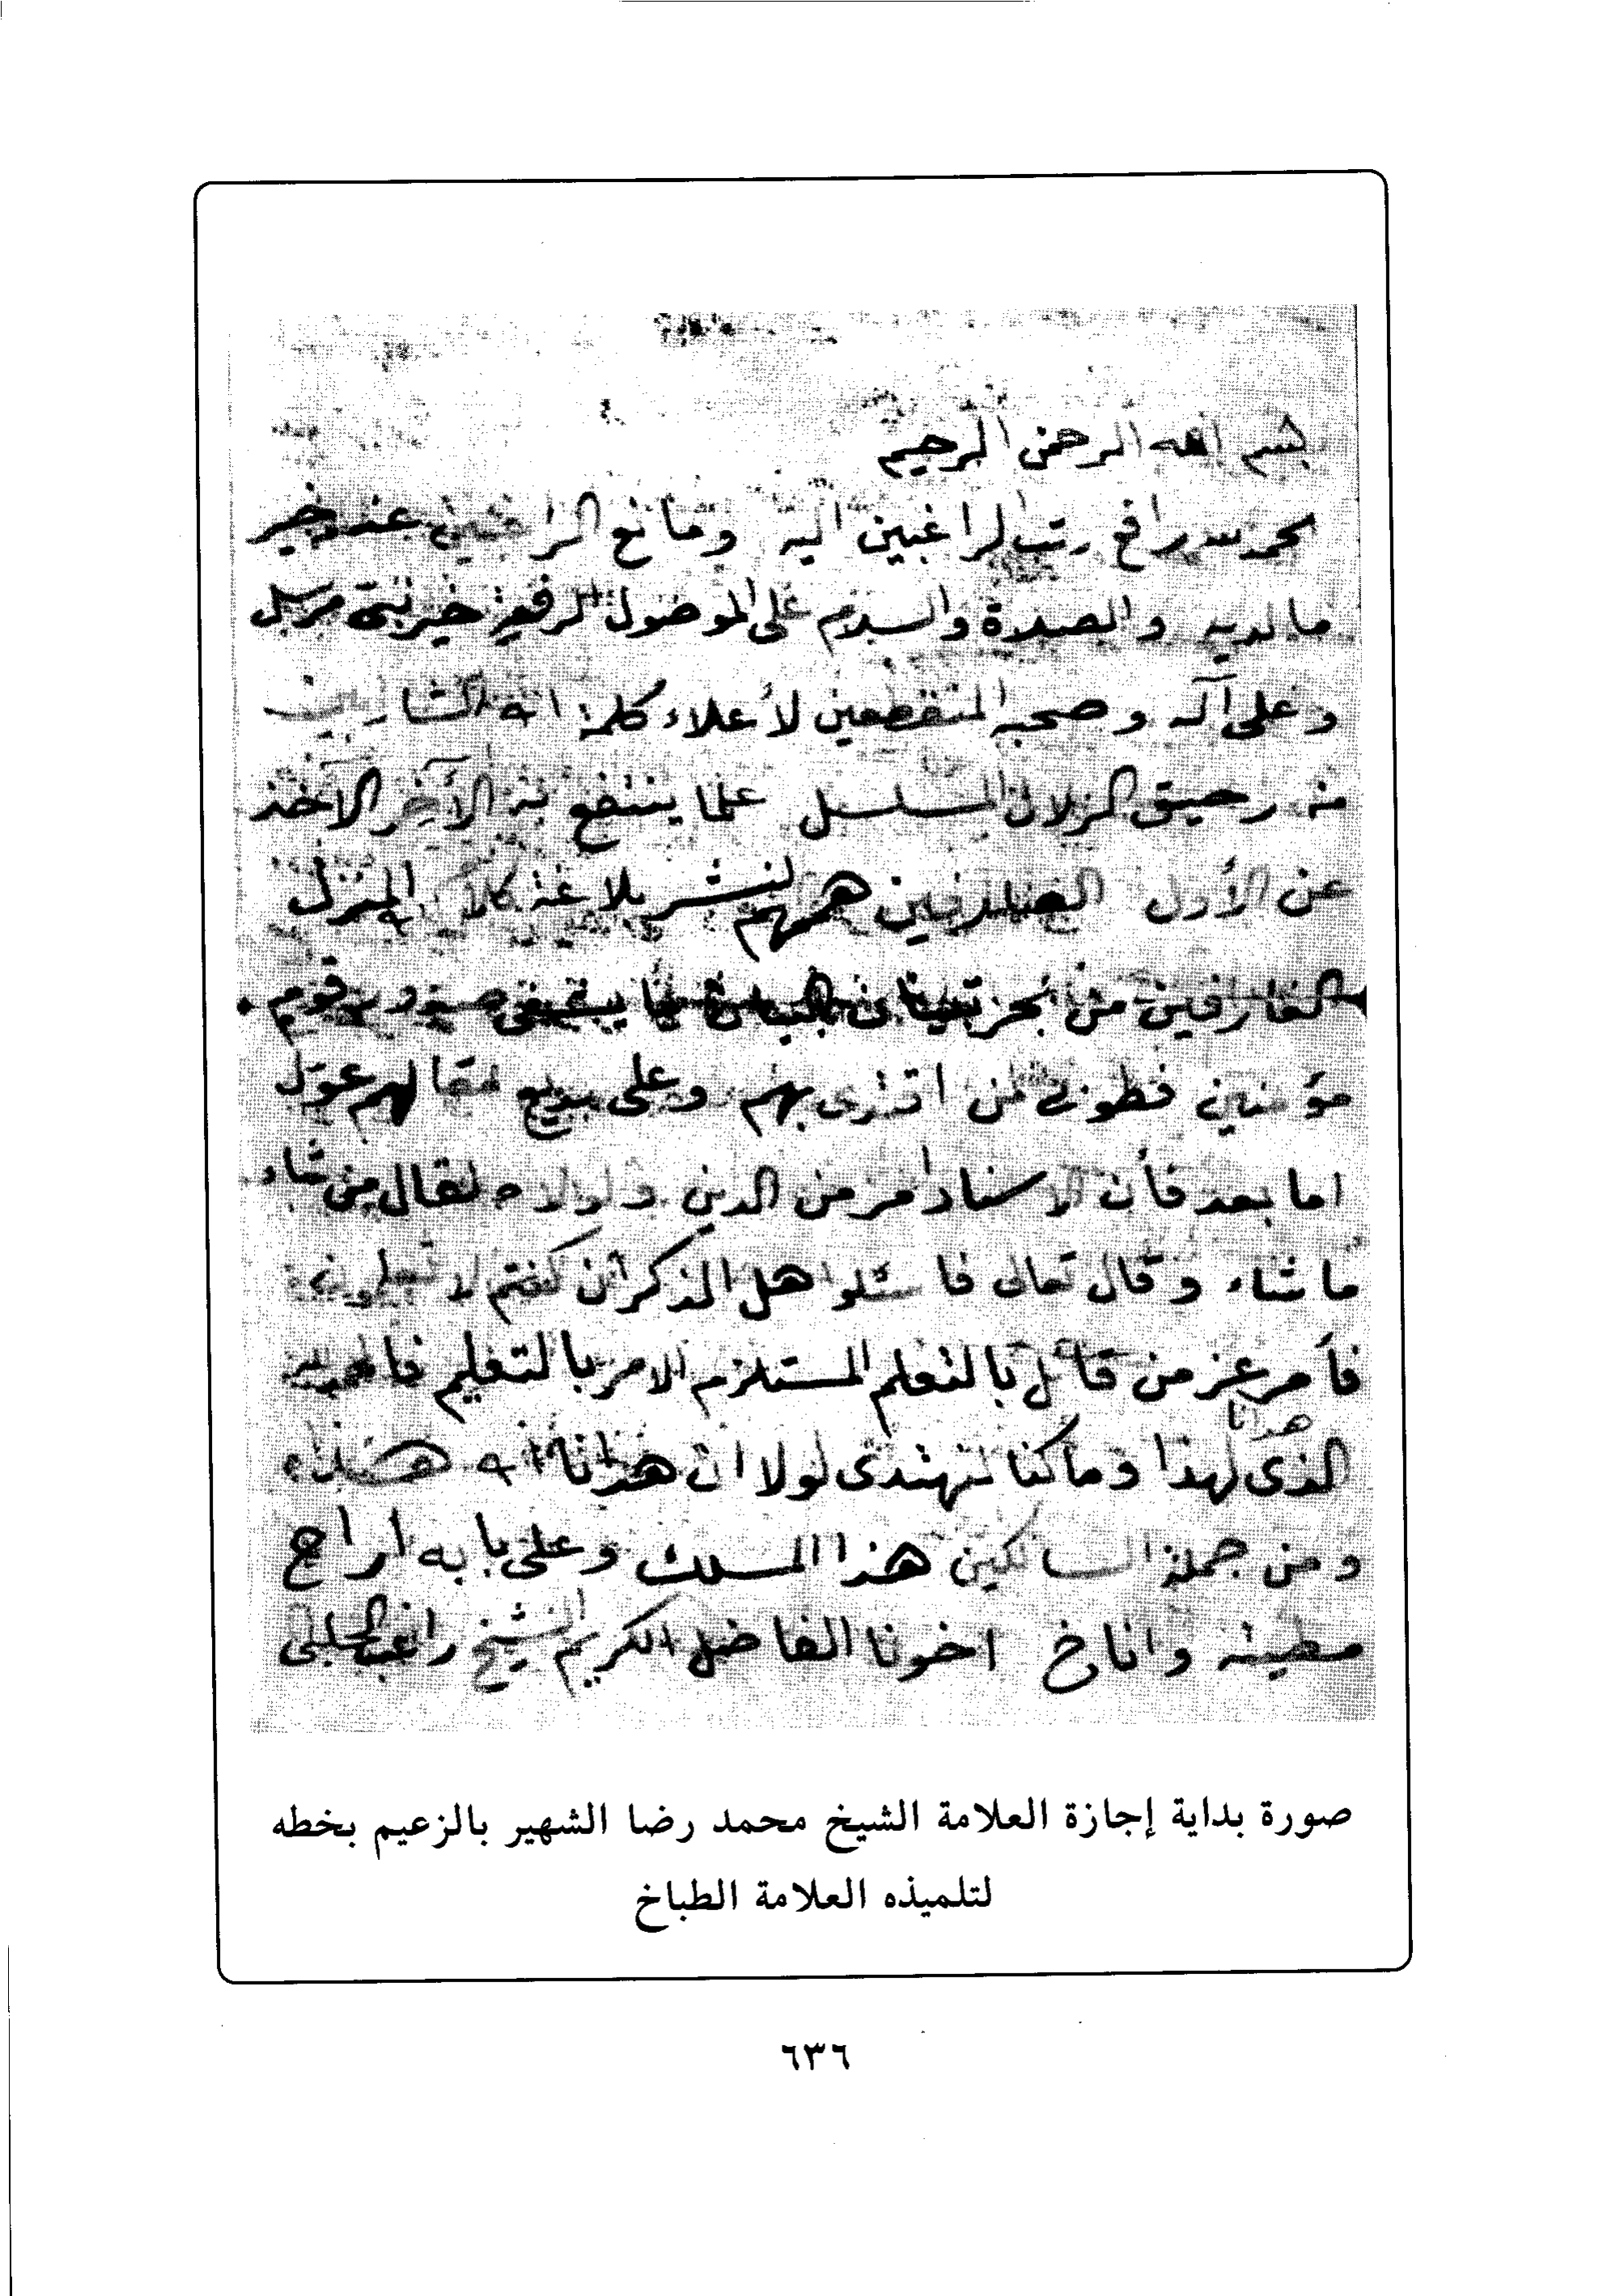 بسم الله الرحمن الرحيم
نحمد الله رافع رتب الراغبين اليه ومانح عنده خير
ما لديه والصلاة والسلام على الموصول الرفعة خير نبي مرسل
وعلى آله وصحبه المنقطعين لأعلاء كلمة الله الشاربين
من رحيق الزلال المسلسل علما ينتفع به الآخر الآخذ
عن الأول هممهم لنشر بلاغة كلام المنزل
الغارفين من بحر صدور قوم
مؤمنين فطوبى لمن اقتدى بهم وعلى بديع مقالهم عول
اما بعد فأن الاسناد امر من الدين ولولاه لقال من شاء
ما شاء وقال تعالى فاسئلوا اهل الذكر أن كنتم لا تعلمون
فأمر عز من قائل بالتعلم المستلزم الامر بالتعليم فالحمد لله
الذي هدانا لهذا وما كنا لنهتدى لولا ان هدانا الله هذا
ومن جملة السالكين هذا المسلك وعلى بابه اراح
مطيته واناخ اخونا الفاضل الكريم الشيخ راغب الحلبي
صورة بداية إجازة العلامة الشيخ محمد رضا الشهير بالزعيم بخطه
لتلميذه العلامة الطباخ
٦٣٦